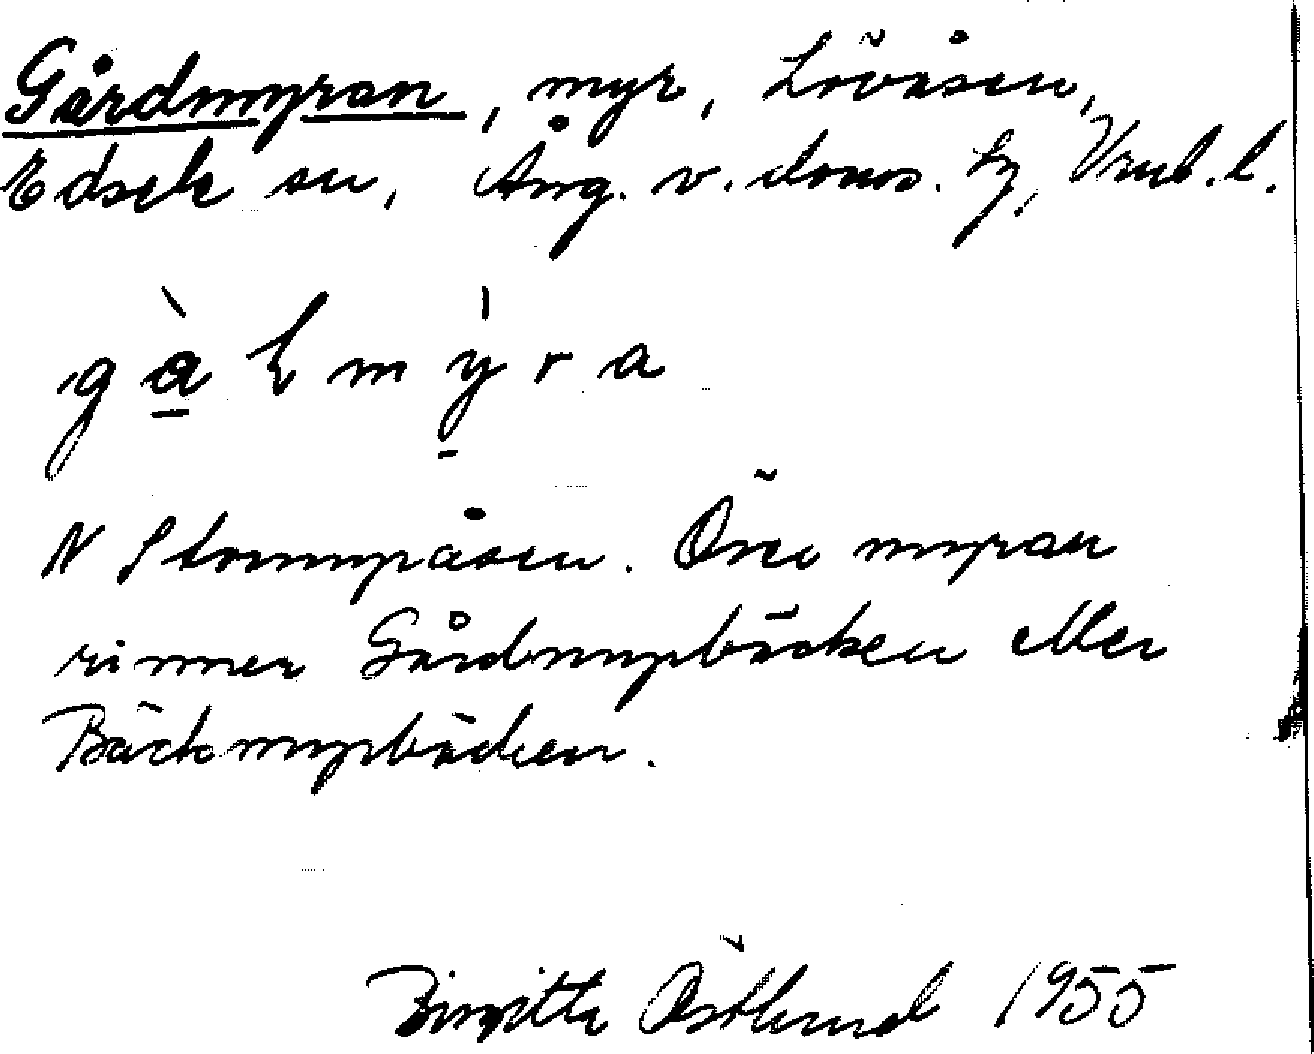 Gårdmyran, myr, Lövåsen,
Edsele sn, Ång. v. doms. hg, Vnrl. l.
N Stormyråsen. Över myran
rinner Gårdmyrbäcken eller
Bäckmyrbäcken.
Birgitta Östlund 1955